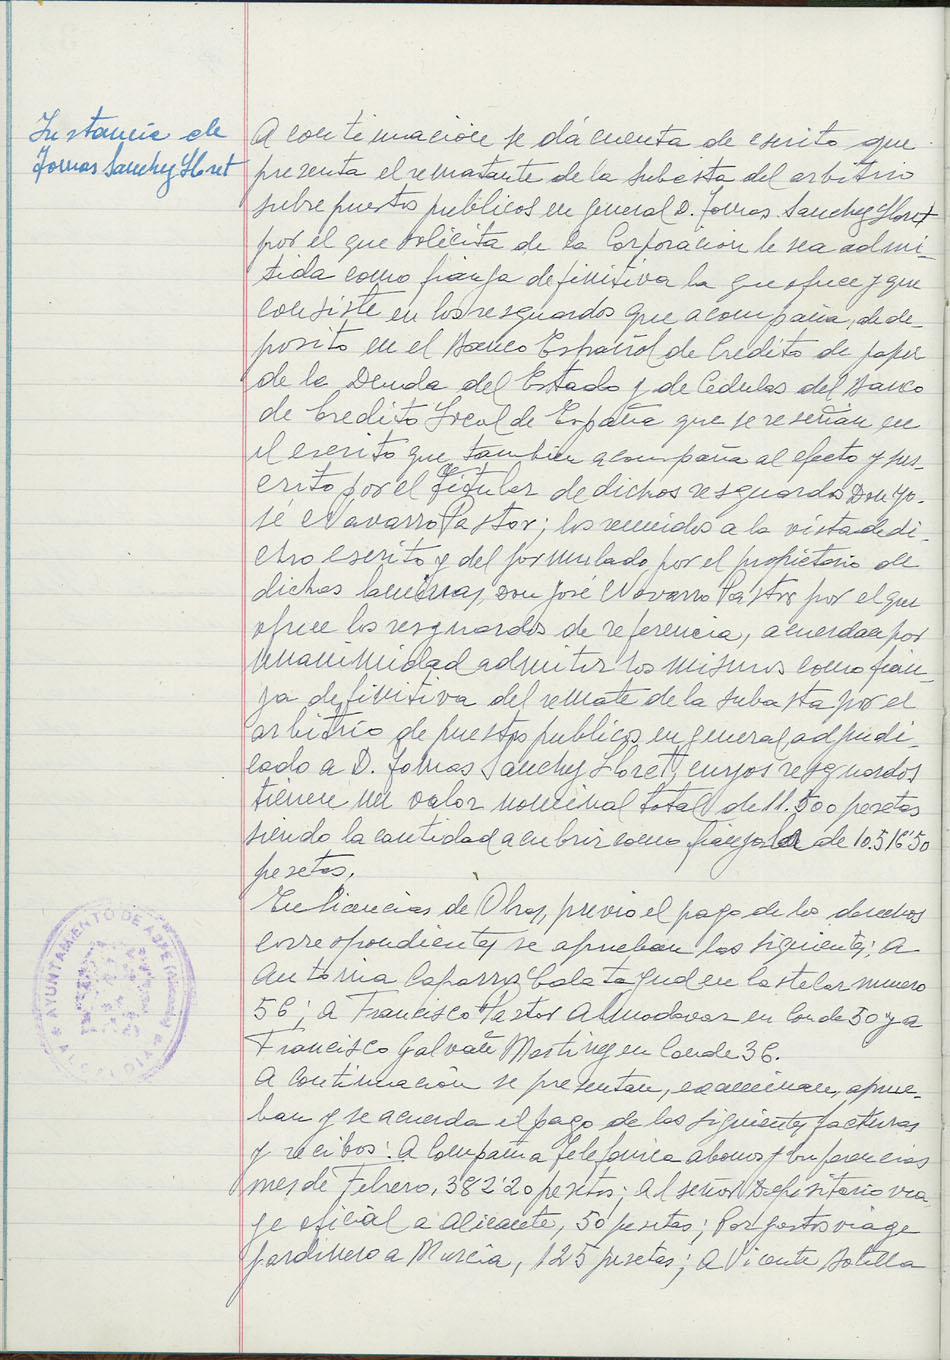 Instancia de
Tomas Sanchez Lloret
A continuación se dá cuenta de escrito que
presenta el rematante de la subasta del arbitrio
sobre puestos publicos en general D. Tomas Sanchez Lloret
por el que solicita de la Corporación le sea admi-
tida como fianza definitiva la que ofrece y que
consiste en los resguardos que acompaña, de de-
posito en el Banco Español de Credito de papel
de la Deuda del Estado y de Cedulas del Banco
de Credito Local de España que se reseñan en
el escrito que tambien acompaña al efecto y sus-
crito por el titular de dichos resguardos Don Jo-
sé Navarro Pastor; los reunidos a la vista de di-
cho escrito y del formulado por el propietario de
dichas laminas, Don José Navarro Pastor por el que
ofrece los resguardos de referencia, acuerdan por
unanimidad admitir los mismos como fian-
za definitiva del remate de la subasta por el
arbitrio de puestos publicos en general adjudi-
cado a D. Tomas Sanchez Lloret, cuyos resguardos
tienen un valor nominal total de 11.500 pesetas
siendo la cantidad a cubrir como fianza la de 10.516'50
pesetas.
En licencias de Obras, previo el pago de los derechos
correspondientes se aprueban las siguientes: A
Antonia Caparros Calatayud en Castelar numero
56; A Francisco Pastor Almodovar en Conde 50 y a
Francisco Galvañ Martinez en Conde 36.
A continuación se presentan, examinan, aprue-
ban y se acuerda el pago de las siguientes facturas
y recibos: A Compañia Telefonica abonos y conferencias
mes de Febrero, 382'20 pesetas; Al señor Depositario via-
je oficial a Alicante, 50 pesetas; Por gastos viage
jardinero a Murcia, 125 pesetas; A Vicente Botella
AYUNTAMIENTO DE